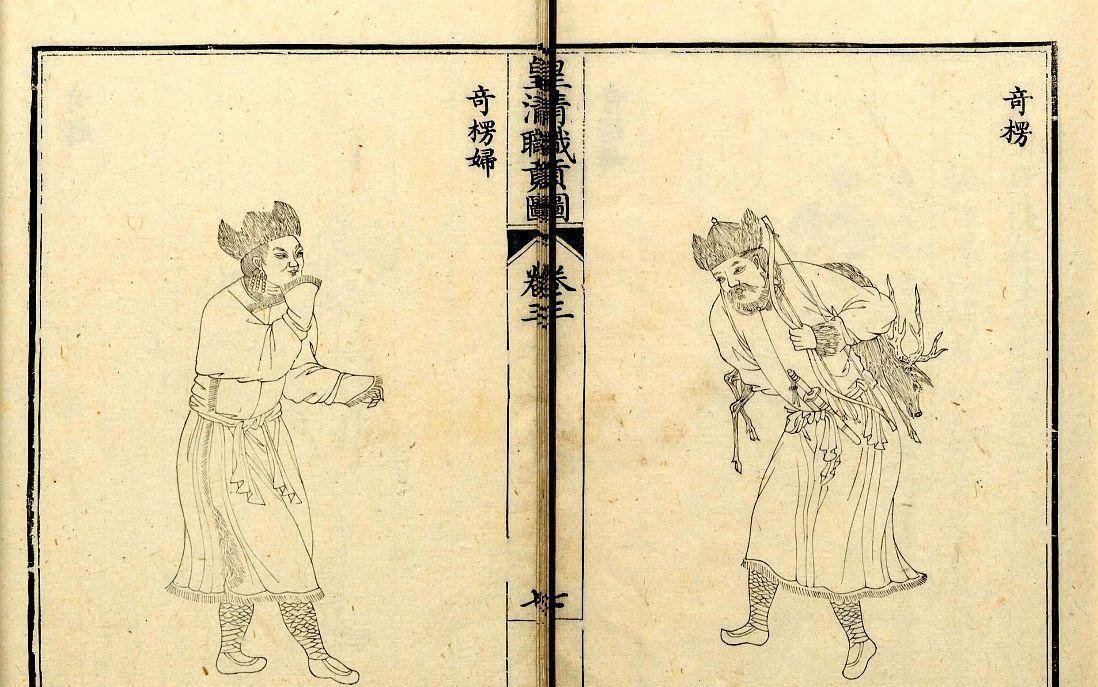 奇楞
皇清職貢圖
卷三
七
奇楞婦